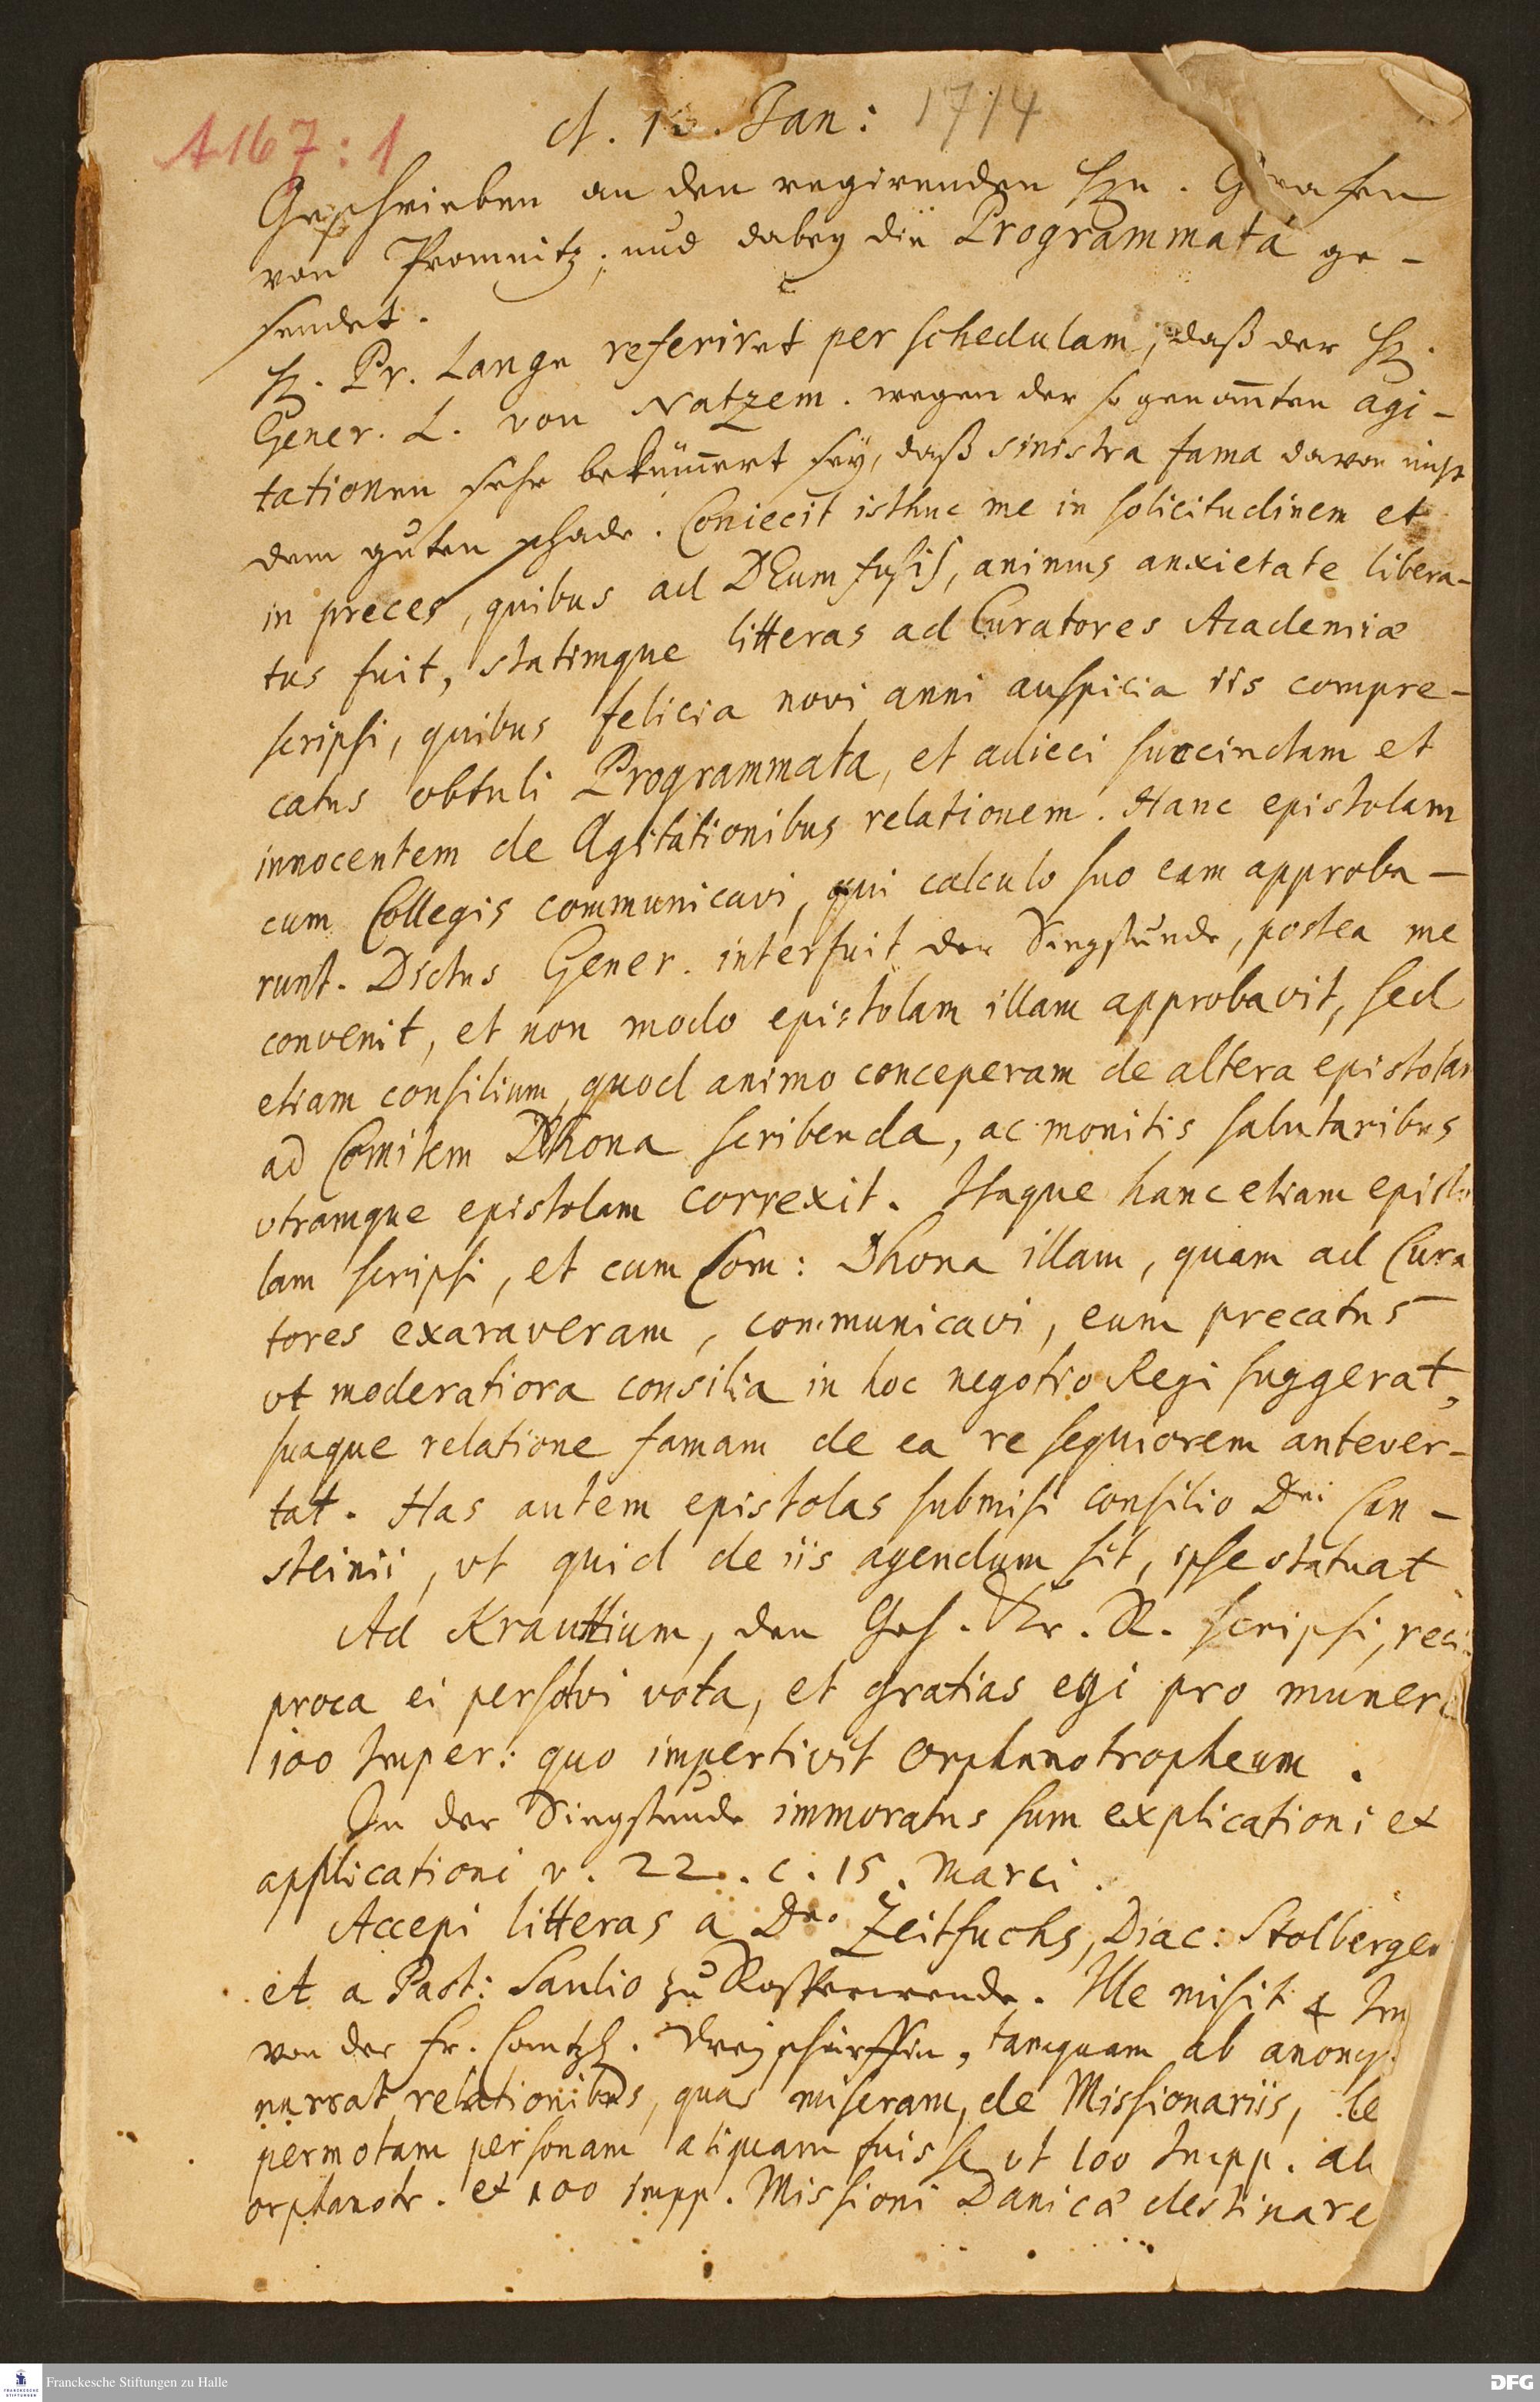 A167:1
d. 10. Jan: 1714
Geschrieben an den regirenden Hn. Grafen
von Promnitz, und dabey die Programmata ge-
sendet.
H. Pr. Lange referiret per schedulam, daß der H.
Gener. L. von Natzem. wegen der so genanten agi-
tationen sehr bekümert sey, daß sinistra fama davon nicht
dem guten schade. Coniecit isthuc me in solicitudinem et
in preces, quibus ad DEum fusis, animus anxietate libera-
tus fuit, statimque litteras ad Curatores Academiæ
scripsi, quibus felicia novi anni auspicia iis compre-
catus obtuli Programmata, et adieci succinctam et
innocentem de Agitationibus relationem. Hanc epistolam
cum Collegis communicavi, qui calculo suo eam approba-
runt. Dictus Gener. interfuit der Singstunde, postea me
convenit, et non modo epistolam illam approbavit, sed
etiam consilium, quod animo conceperam de altera epistola
ad Comitem Dhona scribenda, ac monitis salutaribus
vtramque epistolam correxit. Itaque hanc etiam episto
lam scripsi, et cum Com: Dhona illam, quam ad Cura
tores exaraveram, communicavi, eum precatus
vt moderatiora consilia in hoc negotio Regi suggerat,
suaque relatione famam de ea re sequiorem antever-
tat. Has autem epistolas submisi consilio Dni Can-
steinii, vt quid de iis agendum sit, ipse statuat
Ad Krauttium, den Geh. Kr. R. scripsi, reci
proca ei persolvi vota, et gratias egi pro munere
100 Imper: quo impertivit Orphanotropheum.
In der Singstunde immoratus sum explicationi et
applicationi v. 22. c. 15. Marci.
Accepi litteras a Dno Zeitfuchs, Diac: Stolbergen
et a Past: Saulio zu Rosperwende. Ille misit 4 Im
von der Fr. Cantzl. tamquam ab anony
narrat relationibus, quas miseram, de Missionariis, le
permotam personam aliquam fuisse vt 100 Impp. ab
orphanotr. et 100 Impp. Missioni Danicæ destinare
Franckesche Stiftungen zu Halle
DFG